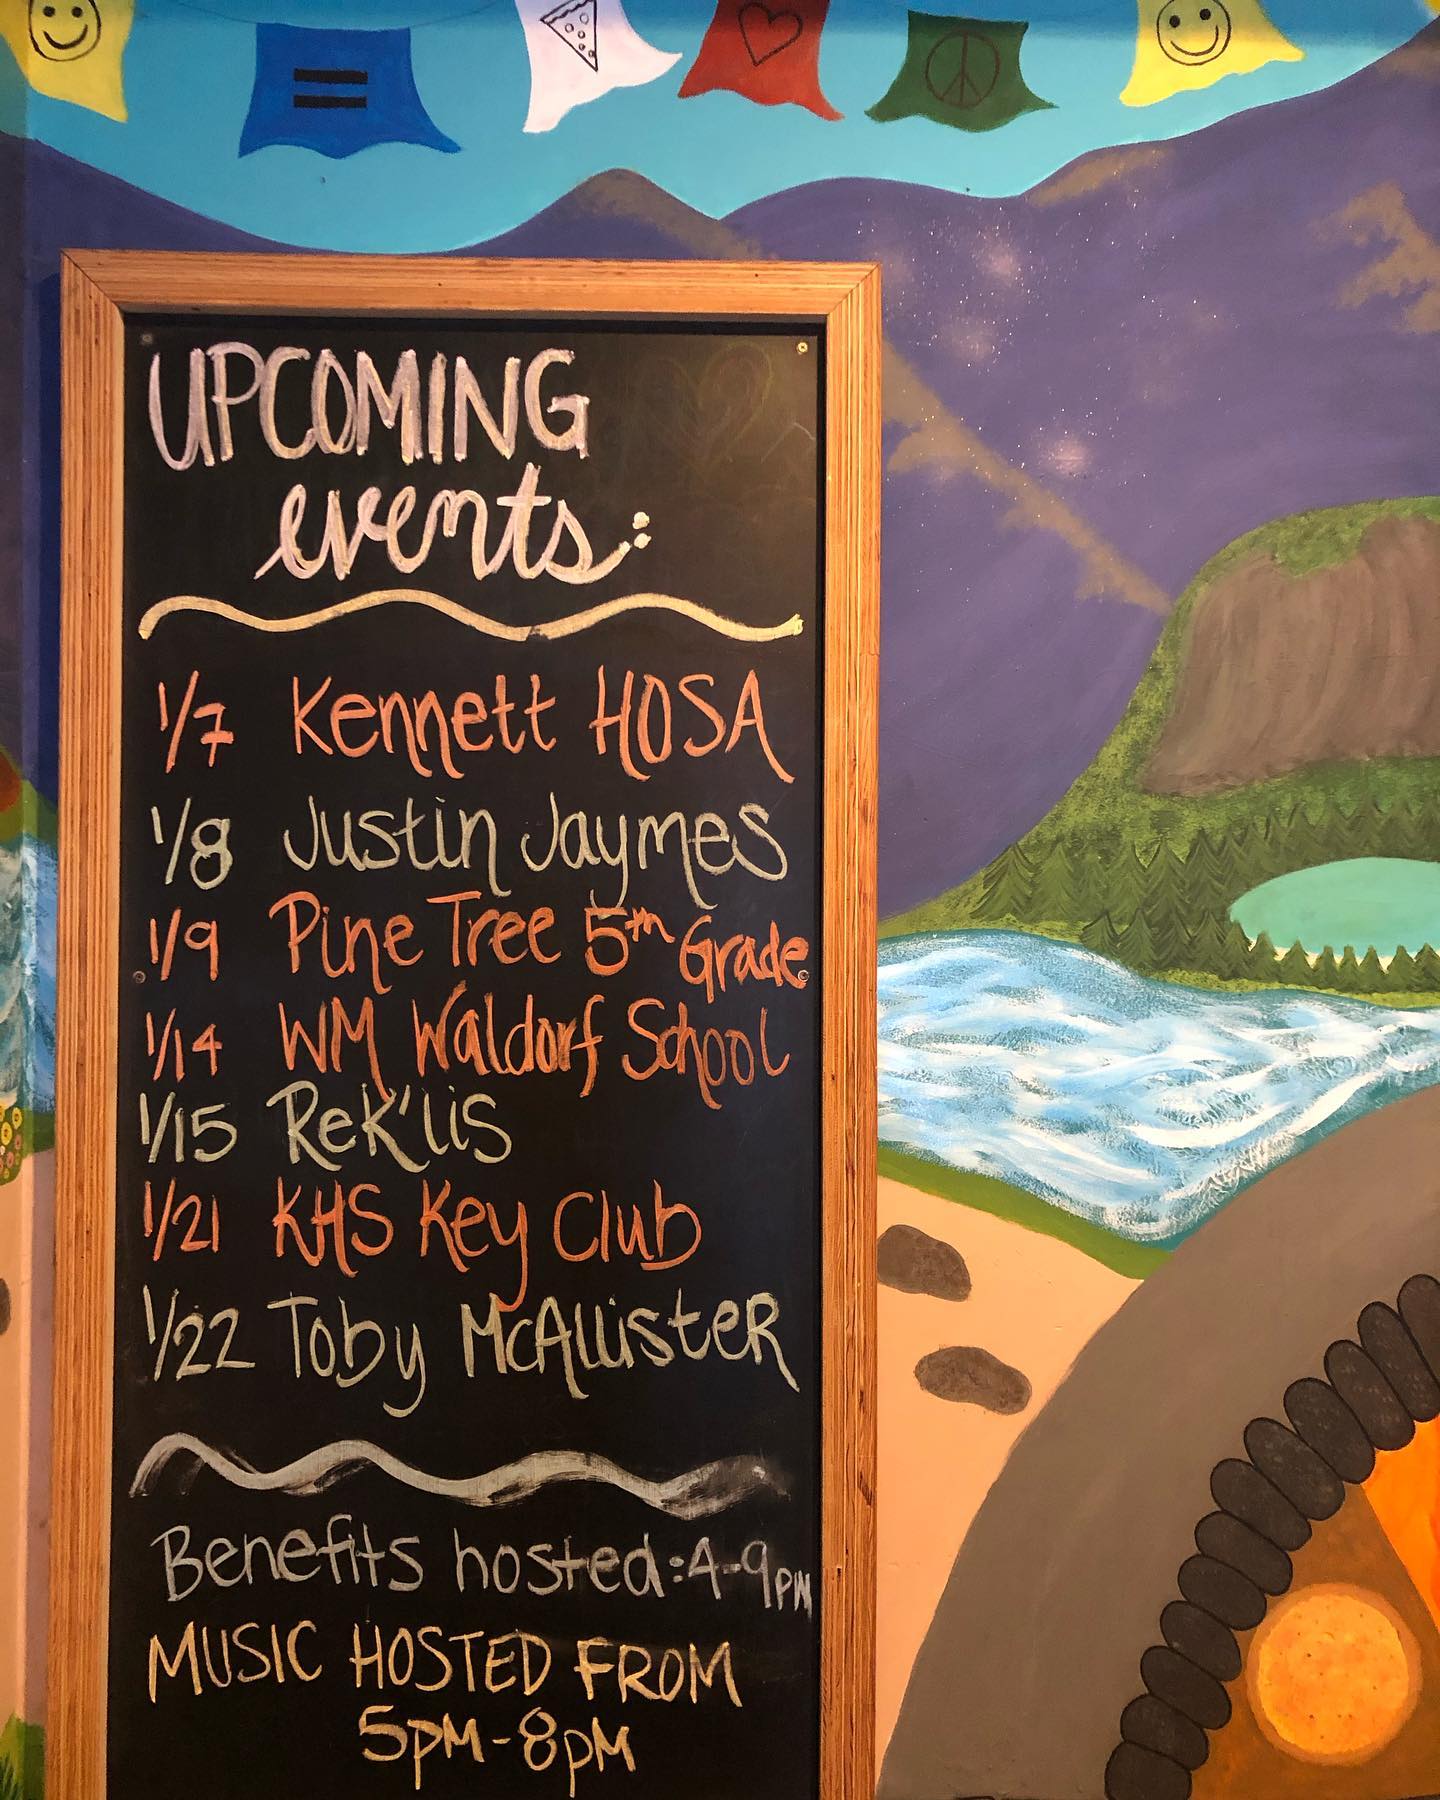 UPCOMING
events:
1/7 Kennett HOSA
1/8 Justin Jaymes
1/9 Pine Tree 5th Grade
1/14 WM Waldorf School
1/15 Rek'lis
1/21 KHS Key Club
1/22 Toby McAllister
Benefits hosted: 4-9pm
MUSIC HOSTED FROM
5pm-8pm